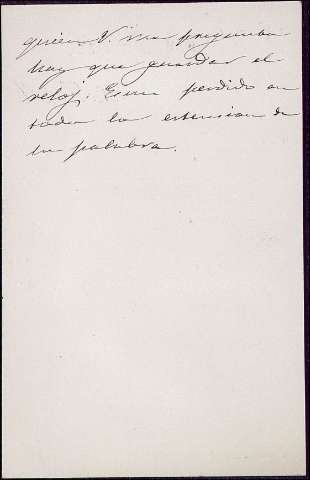 quien V. me pregunta
hay que guardar el
reloj. Es un perdido en
toda la estension de
la palabra.